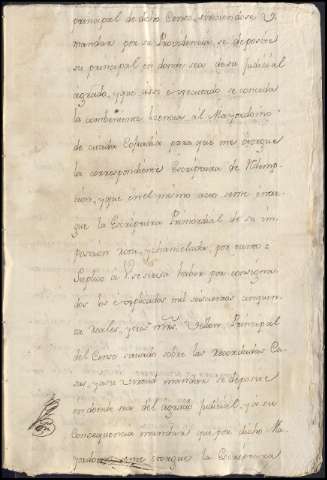 principal de dicho Censo, sirviendose V.
mandar por su Providencia, se deposite
su principal en donde sea de su judicial
agrado, y que assi executado se conceda
la combeniente licencia al Mayordomo
de citada Cofradia para que me otorgue
la correspondiente Escriptura de Redemp
cion, y que en el mismo acto se me entre
gue la Escriptura Primordial de su im
posicion rota, y chancelada, por tanto =
Suplico à V. se sirva haver por consigna
dos los explicados mil sesenta
reales, y mrs. Vellon, Principal
del Censo sacado sobre las recordadas Ca
sas, y en su virtud mandar se deposite
en donde sea del agrado judicial, y en su
consequencia mandar que por dicho Ma
yordomo se me otorgue la Escriptura